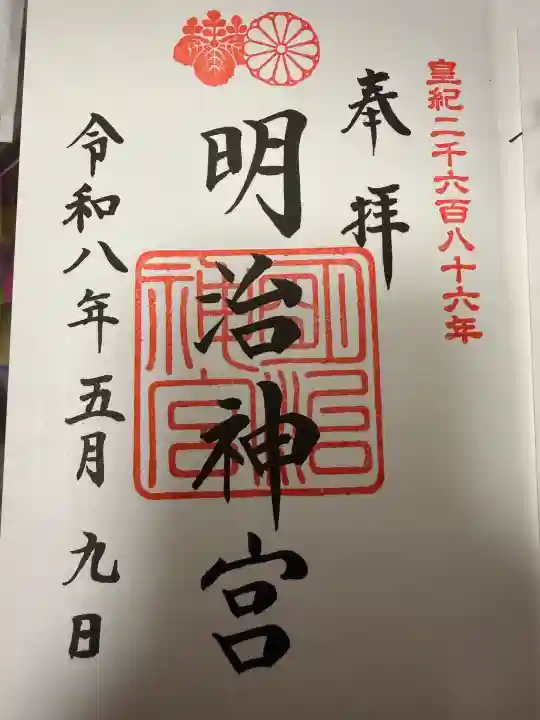 皇紀二千六百八十六年
奉拝
明治神宮
明治神宮
令和八年五月九日